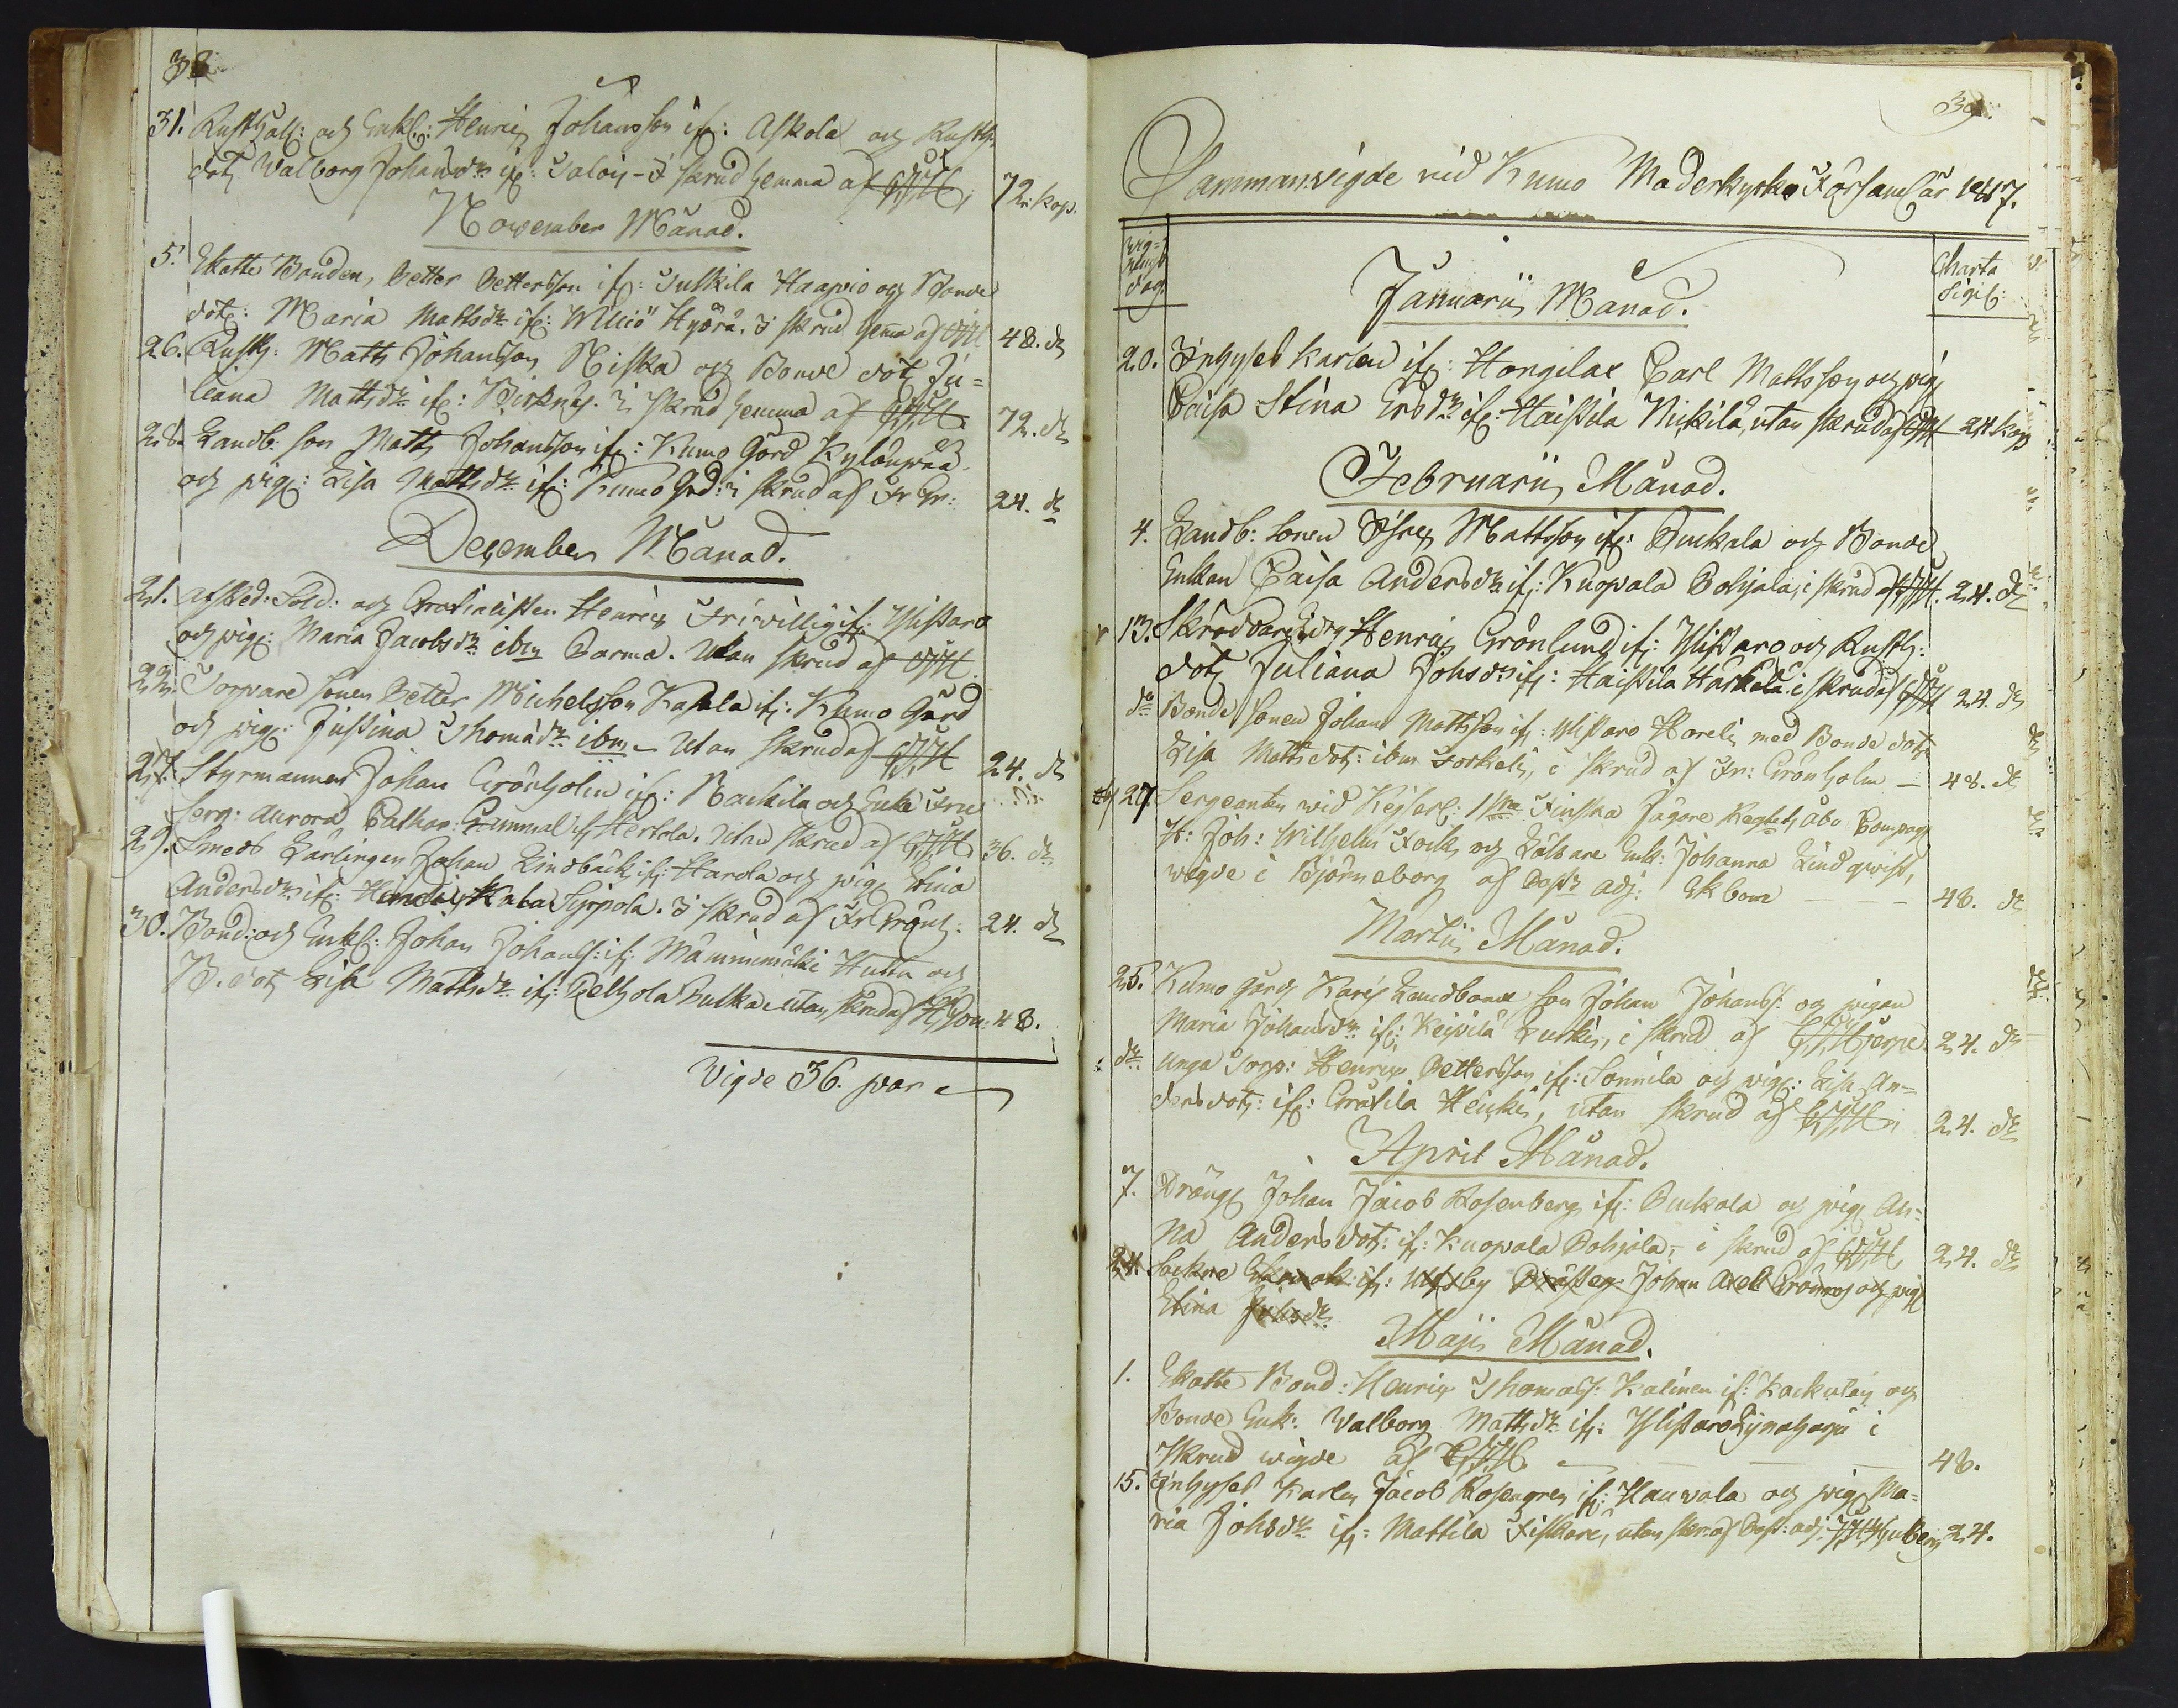 38
31. Rusthåll: och Enkl: Henric Johansson if: Askola och Rusth:
dotr Walborg Johansdr if: Taloi - I skrud hemma af GJH 72. kop.
November Månad.
5. Skatte Bonden, Petter Pettersson if: Tulkila Haapio och Bonde
dotr: Maria Mattsdr if: Williö Hyörä. I skrud hemma af GJH 48. dr
26. Rusth: Matts Johansson Niska och Bonde dotr Ju=
leana Mattsdr if: Pirknäs. i skrud hemma af GJH 72. dr
28. Landb: son Matts Johansson if: Kumo Gård Kylänpää
och pig: Lisa Mattsdr if: Kumo Grd: i skrud af Fr Gr: 24. dr
December Månad.
21. afsked: Sold: och Gratialisten Henric Friwillig if: Ylistaro
och pig: Maria Jacobsdr ibm Parma. Utan skrud af GJH
22. Torpare sonen Petter Michelsson Kasala if: Kumo Gård
och pig: Justina Thomådr ibm – Utan skrud af GJH 24. dr
27. Styrmannen Johan Grönholm if: Rackila och Enke Fru
Serg: Aurora Palhan: Gammal if Hertola. Utan skrud af GJH 36. dr
29. Smeds Lärlingen Johan Lindbäck if: Harola och pig Stina
Andersdr if: Kala Sippola. I skrud af Fr Grönh: 24. dr
30. Bond: och Enkl: Johan Johans: if: Mamminmäki Hutta och
B. dotr Lisa Mattsdr if: Pelhola Pulka utan skrud af 48.
Vigde 36. par
39.
Sammanvigde vid Kumo Moderkyrko Församl år 1817.
Wig=
nings
dag.
Charta
Sigil:
Januarii Månad.
20. Inhyses Karlen if: Hongilax Carl Mattsson och pig
Caisa Stina Ersdr if: Haistila Nickilä, utan skrud af GJH 24 kop
Februarii Månad.
4. Landb: Sonen Mattsson if: Puckala och Bonde
Enkan Caisa Andersdr if: Kuopala Pohjala, i skrud af GJH. 24. dr
13. Skräddare Henric Grönlund if: Ylistaro och Rusth:
dotr Juliana Johsdr if: Haistila Härkälä. i skrud af GJH 24. dr
dr Bonde sonen Johan Mattsson if: Ylistaro Horeli med Bonde dotr
Lisa Matts dotr: ibm Forkeli, i skrud af Fr: Grönholm — 48. dr
27. Sergeanten wid Kejserl: 1sta Finska Jägare Regtet, Åbo Compag
H: Joh: Wilhelm Fock och Enk: Johanna Lindqwist,
wigde i Björneborg af Past: Adj: Ekbom — — — 48. dr
Martii Månad.
25. Kumo Gårds Karis Landbonde son Johan Johans: och pigan
Maria Johansdr if: Keipilä Lurkis, i skrud af GJHjerpe. 24. dr
dr. Unga Torp: Henric Pettersson if: Sonnila och pig: Lisa An=
dersdotr: if: Gräfila Heicki, utan skrud af GJH 24. dr
April Månad.
7. Dräng Johan Jacob Rosenberg if: Puckala och pig An=
na Andersdotr: if: Kuopala Pohjola, i skrud af GJH 24. dr
24. Sockne if: Ulfsby Johan Axel och pig
Stina Johsdr
Maji Månad.
1. Skatte Bond: Henric Thomass: Kalinen if: Kackulax och
Bonde Enk: Walborg Mattsdr if: Ylistaro i
skrud wigde af GJH. — — — 48.
15. Inhyses Karlen Jacob Rosengren if: Kauvola och pig Ma=
ria Johsdr if: Mattila Fiskare, utan skr: af Past: adj: 24.